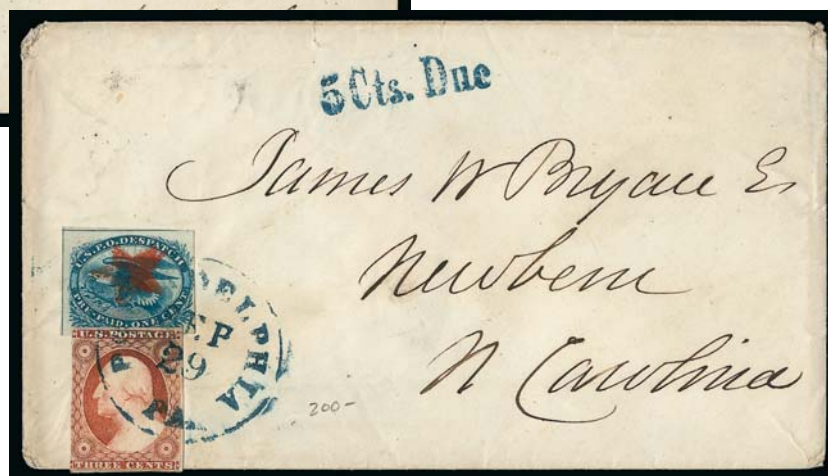 5 Cts. Due
James W Bryan E
Newbern
N Carolina
U.S.P.O. DESPATCH
PRE-PAID. ONE CENT
U.S. POSTAGE
THREE CENTS
PHILADELPHIA
SEP
29
Pa.
200-